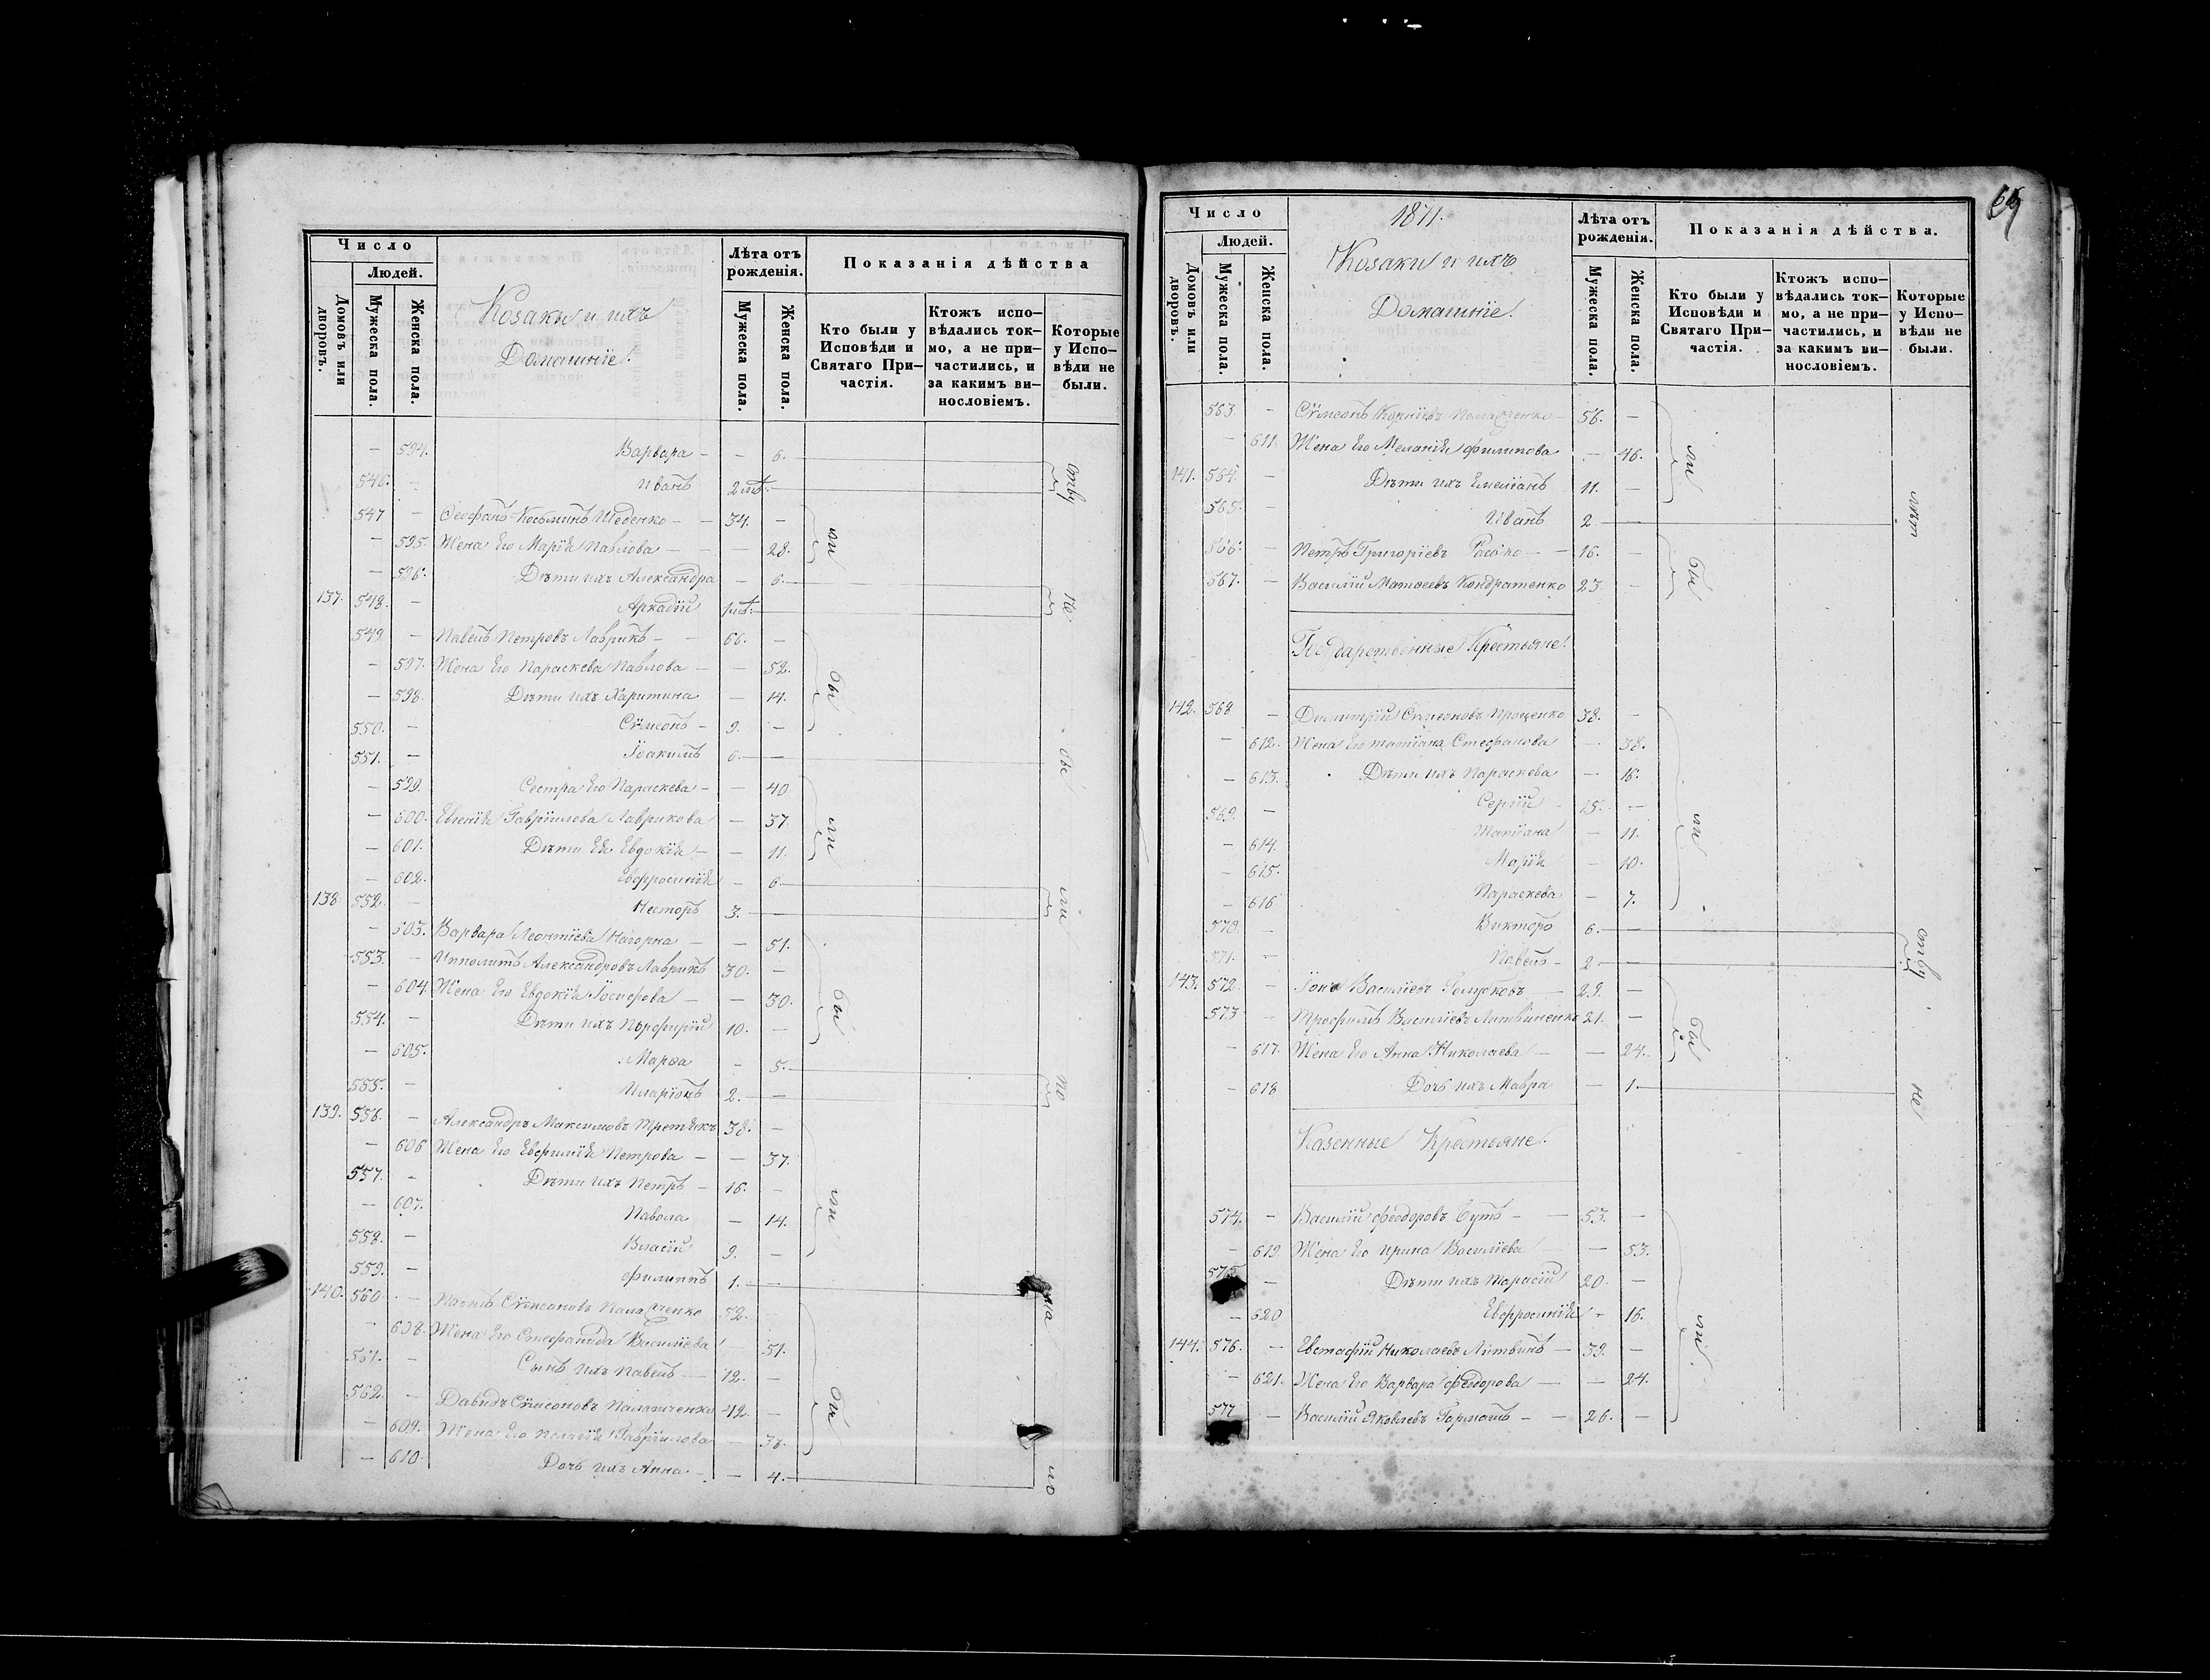 Число
Людей.
Домовъ или дворовъ.
Мужеска пола.
Женска пола.
Козаки и ихъ
Домашніе.
Лѣта отъ рожденія.
Мужеска пола.
Женска пола.
Показанія дѣйства
Кто были у Исповѣди и Святаго Причастія.
Ктожъ исповѣдались токмо, а не причастились, и за какимъ винословіемъ.
Которые у Исповѣди не были.
— 594. Варвара — — 6.
546. — Иванъ 2 лѣт. —
547 — Ѳеофанъ Косьминъ Шеденко — 34. —
— 595. Жена Его Марія Павлова — — 28.
— 596. Дѣти ихъ Александра — 6.
137. 548. — Аркадій 1 лѣт. —
549 — Павелъ Петровъ Лаврикъ — 66. —
— 597. Жена Его Параскева Павлова — — 52.
— 598. Дѣти ихъ Харитина — 14.
550. — Сѵмеонъ — 9. —
551. — Іоакимъ 6. —
— 599. Сестра Его Параскева — — 40.
— 600. Евгенія Гавріилова Лаврикова — 37.
— 601. Дѣти Ея Евдокія — — 11.
— 602. Евфросинія — 6
138 552. — Несторъ 3. —
— 603. Варвара Леонтіева Нагорна — — 51.
553. — Ипполитъ Александровъ Лаврикъ 30. —
— 604. Жена Его Евдокія Іосифова — — 30.
554. — Дѣти ихъ Порфирій 10. —
— 605. Марѳа — 5.
555. — Иларіонъ 2. —
139. 556. — Александръ Максимовъ Третякъ 38. —
— 606 Жена Его Евфимія Петрова — — 37.
557. — Дѣти ихъ Петръ — 16. —
— 607. Павола — 14.
558. — Власій 9. —
559. — Филиппъ 1. —
140. 560. — Сѵмеоновъ 52.
— 608. Жена Его Стефанида Василіева 51.
561. — Сынъ ихъ Павелъ — 12. —
562. — Давидъ Сѵмеоновъ 42. —
— 609. Жена Его Пелагія Гавріилова — 38.
— 610 Дочь ихъ Анна — — 4.
69
Число
Людей.
Домовъ или дворовъ.
Мужеска пола.
Женска пола.
1871.
Козаки и ихъ
Домашніе.
Лѣта отъ рожденія.
Мужеска пола.
Женска пола.
Показанія дѣйства.
Кто были у Исповѣди и Святаго Причастія.
Ктожъ исповѣдались токмо, а не причастились, и за какимъ винословіемъ.
Которые у Исповѣди не были.
563. — Сѵмеонъ Корніевъ 56. —
— 611. Жена Его Меланія Филипова — 46.
141. 564 — Дѣти ихъ Емеліанъ 11. —
565. Иванъ 2 —
566. — Петръ Григоріевъ — 16. —
567. — Василій Матѳеевъ Кондратенко 23 —
Государственные Крестьяне.
142. 568 — Димитрій Сѵмеоновъ Проценко 38. —
— 612. Жена Его Татіана Стефанова — 38.
— 613. Дѣти ихъ Параскева — 16.
569. — Сергій — 15. —
— 614. Татіана — 11.
— 615. Марія — 10.
— 616 Параскева — 7.
570. — Викторъ 6. —
571. — Павелъ — 2 —
143. 572. — Іонъ Василіевъ Голубковъ — 29. —
573 — Трофимъ Василіевъ Литвиненко 21. —
— 617. Жена Его Анна Николаева — — 24.
— 618 Дочь ихъ Мавра — 1.
Казенные Крестьяне.
574. — Василій Ѳеодоровъ — 53. —
— 619 Жена Его Ирина Василіева — 53.
575 — Дѣти ихъ Тарасій 20. —
— 620 Евфросинія — 16.
144. 576. — Евстафій Николаевъ Литвинъ — 39. —
— 621. Жена Его Варвара Ѳеодорова — — 24.
577 — Василій Яковлевъ Гармашъ — 26. —